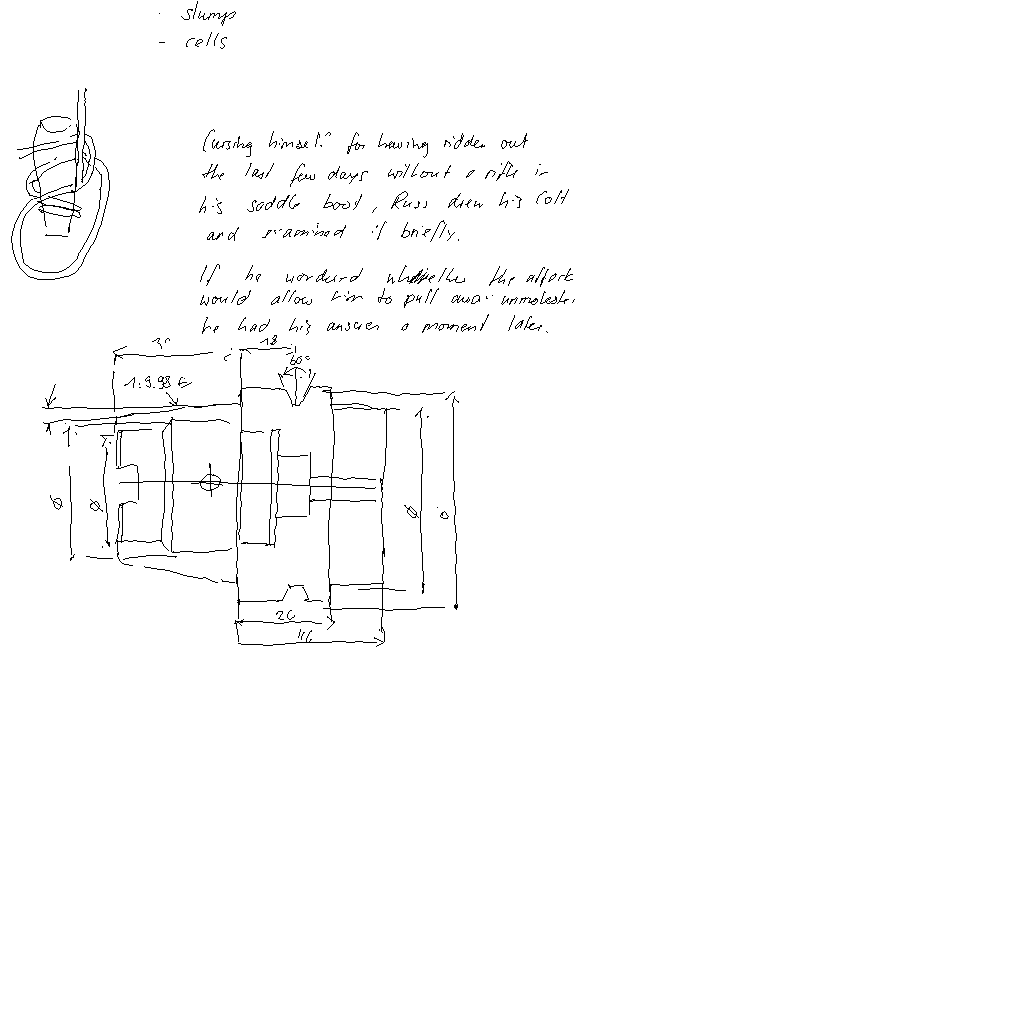 · slumps
- cells
Cursing himself for having ridden out
the last few days without a rifle in
his saddle boot, Russ drew his Colt
and examined it briefly.
If he wonderd whether the attack
would allow him to pull away
he had his answer a moment later.
18
60°
1:9.98
Ø Ø Ø
26